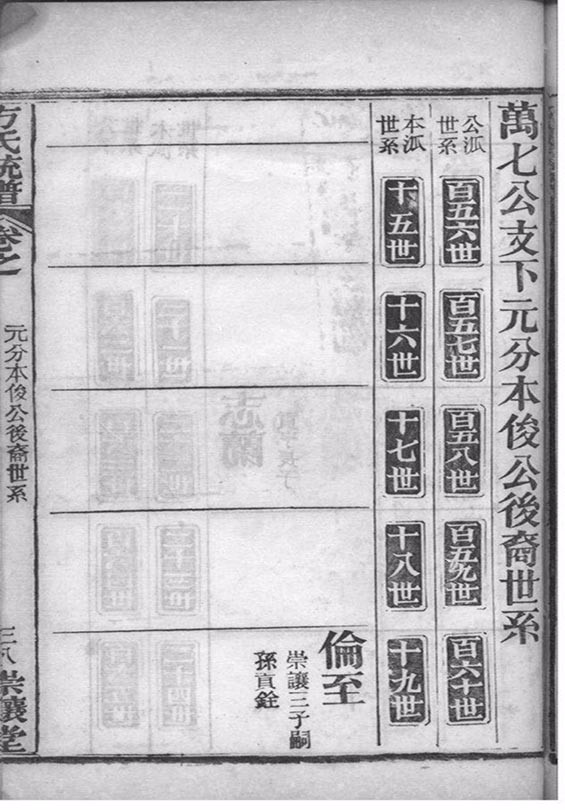 萬七公支下元分本俊公後裔世系
公派世系
百五六世
百五七世
百五八世
百五九世
百六十世
本派世系
十五世
十六世
十七世
十八世
十九世
倫至
崇讓三子嗣
孫貞銓
方氏統譜
卷之
元分本俊公後裔世系
三八
崇讓堂